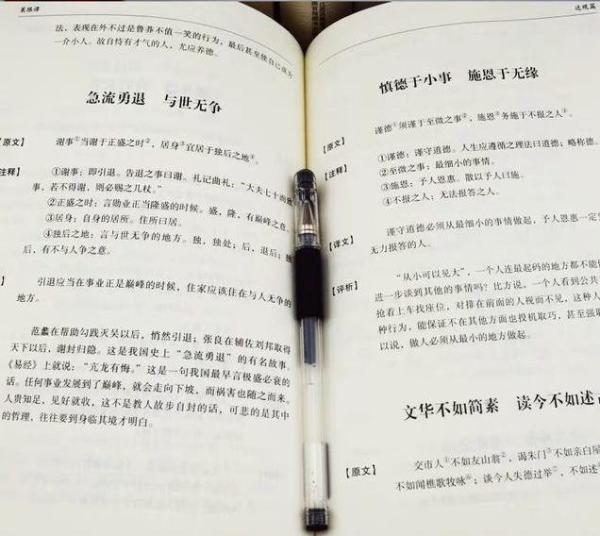 菜根谭
法，表现在外不过是鲁莽不值一笑的行为，最后甚至使自己成为
一介小人。故自恃有才气的人，尤应养德。
急流勇退　与世无争
【原文】
谢事①当谢于正盛之时②，居身③宜居于独后之地④。
注释】
①谢事：即引退。告退之事曰谢。礼记曲礼：“大夫七十而致
事，若不得谢，则必赐之几杖。”
②正盛之时：言勋业正当隆盛的时候。盛，隆，有巅峰之意。
③居身：自身的居所。住所曰居。
④独后之地：言与世无争的地方。独，独处；后，退居
后，有不与人争之意。
】
引退应当在事业正是巅峰的时候，住家应该住在与人无争的
地方。
】
范蠡在帮助勾践灭吴以后，悄然引退；张良在辅佐刘邦取得
天下以后，谢封归隐。这是我国史上“急流勇退”的有名故事。
《易经》上就说：“亢龙有悔。”这是一句我国最早言极盛必衰的
话。任何事业发展到了巅峰，就会走向下坡，而祸害也随之而来。
人贵知足，见好就收，这不是教人故步自封的话，可悲的是其中
的哲理，往往要到身临其境才明白。
达观篇
慎德于小事　施恩于无缘
【原文】
谨德①须谨于至微之事②，施恩③务施于不报之人④。
【注释】
①谨德：谨守道德。人生应遵循之理法曰道德；略称德。
②至微之事：最细小的事情。
③施恩：予人恩惠。散以予人曰施。
④不报之人；无法报答之人。
【译文】
谨守道德必须从最细小的事情做起，予人恩惠一定
无力报答的人。
【评析】
“从小可以见大”，一个人连最起码的地方都不能
进一步谈到其他的事情吗？比方说，一个人看到公共
抢着上车找座位，对排在前面的人视而不见，这种人
种行为，能保证不在其他方面也投机取巧，甚至强取
以说，做人必须从最小的地方做起。
文华不如简素　读今不如述古
【原文】
交市人①不如友山翁②，谒朱门③不如亲白屋
不如闻樵歌牧咏⑥；谈今人失德过举⑦，不如述